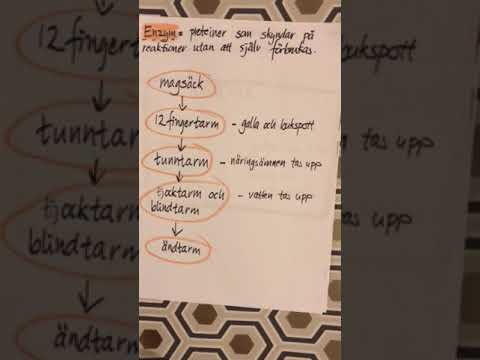 Enzym = proteiner som skyndar på
reaktioner utan att själv förbrukas.
magsäck
12 fingertarm - galla och bukspott
tunntarm - näringsämnen tas upp
tjocktarm och - vatten tas upp
blindtarm
ändtarm